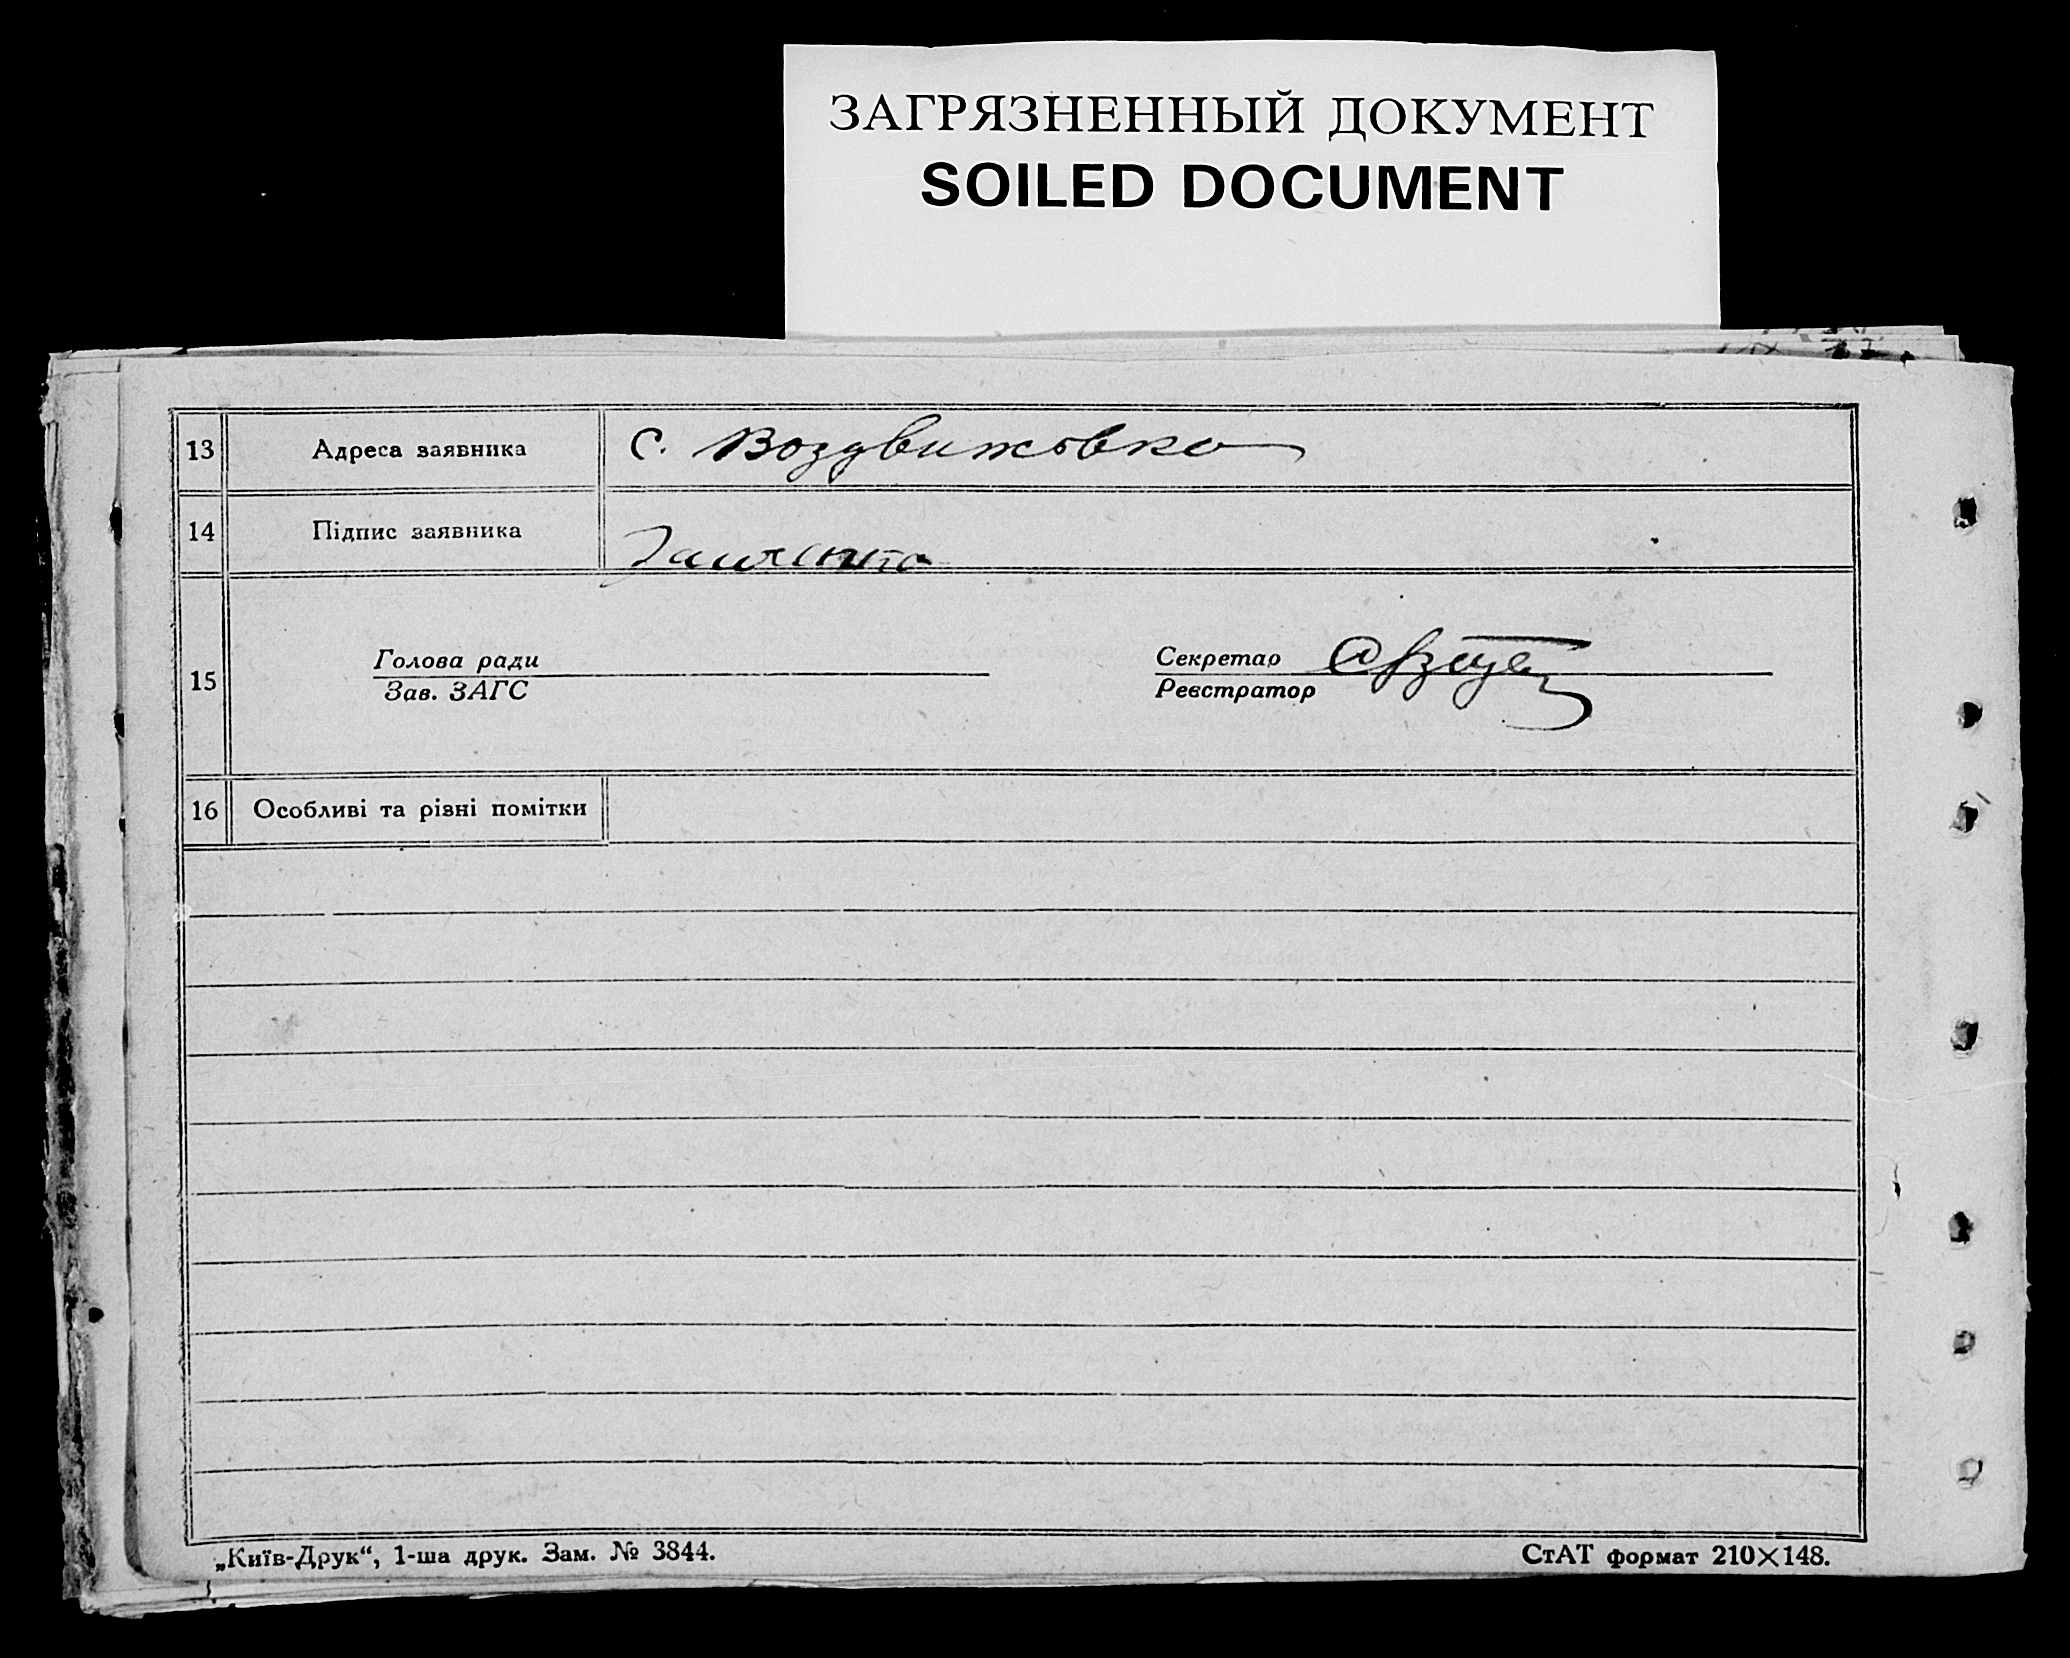 ЗАГРЯЗНЕННЫЙ ДОКУМЕНТ
SOILED DOCUMENT
13 Адреса заявника с. Воздвижовка
14 Підпис заявника
15
Голова ради
Зав. ЗАГС
Секретар
Реєстратор
16 Особливі та різні помітки
„Київ-Друк“, 1-ша друк. Зам. № 3844.
СтАТ формат 210×148.